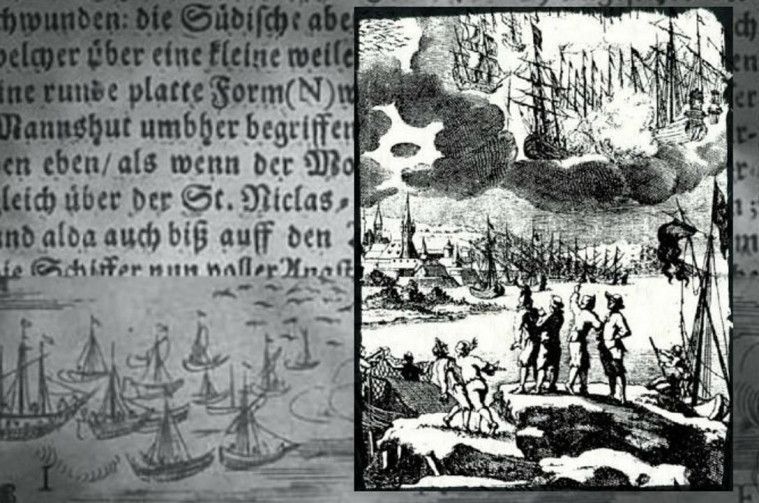 hwunden: die Südische abe
elcher über eine kleine weile
ine runde platte Form(N)w
Mannshut umbher begriffen
en eben/ als wenn der Mo
leich über der St. Niclas-
nd alda auch biß auff den
ie Schiffer nun voller Angst
I